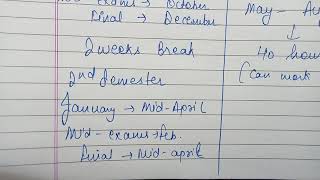 Exams → October
Final → December
2 weeks Break
2nd Semester
January → Mid-April
Mid-exams → Feb.
Final → Mid-april
May -
↓
40 hour
(Can work